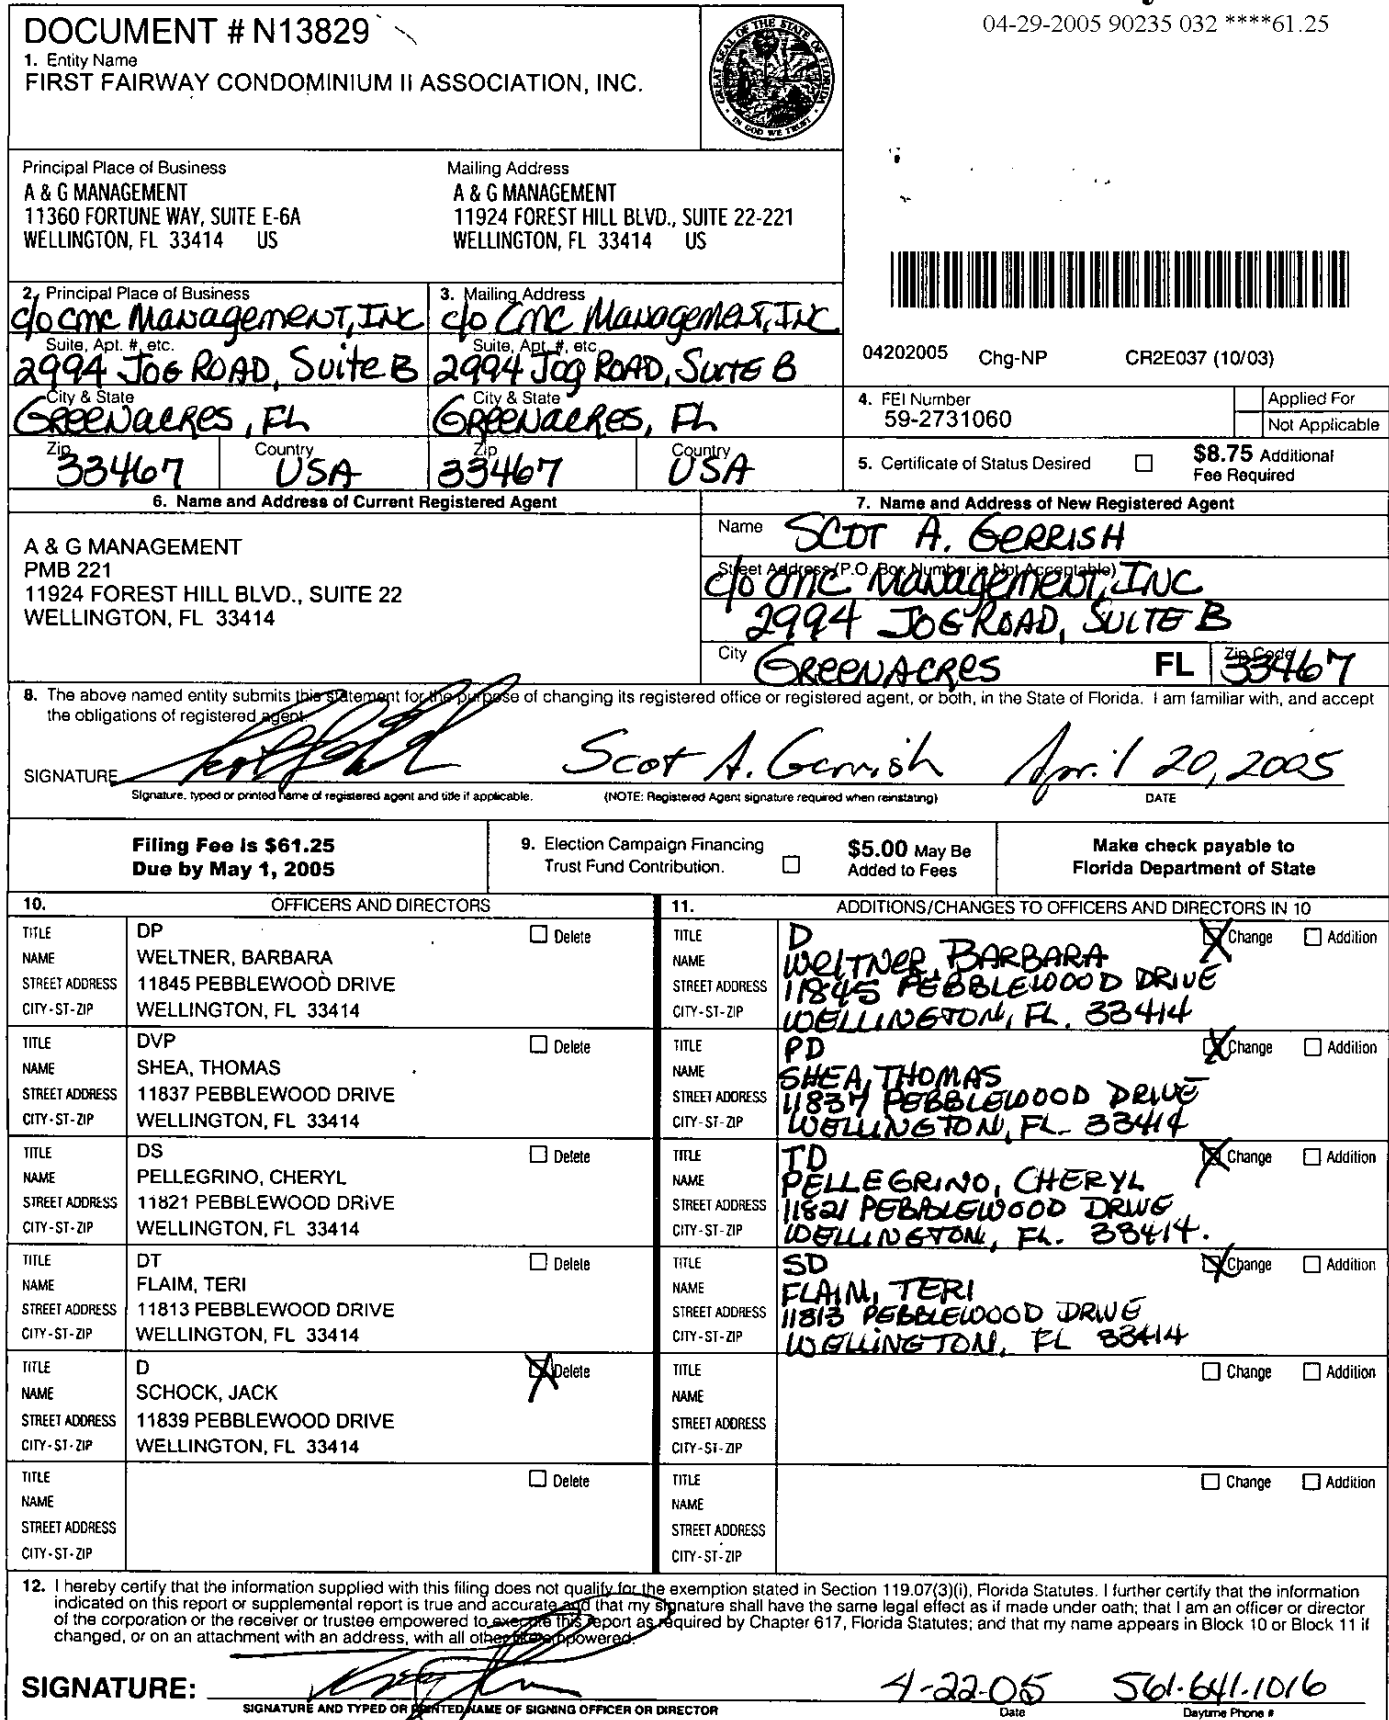 04-29-2005 90235 032 ****61.25
DOCUMENT # N13829
1. Entity Name
FIRST FAIRWAY CONDOMINIUM II ASSOCIATION, INC.
GREAT SEAL OF THE STATE OF FLORIDA
IN GOD WE TRUST
Principal Place of Business
A & G MANAGEMENT
11360 FORTUNE WAY, SUITE E-6A
WELLINGTON, FL 33414 US
Mailing Address
A & G MANAGEMENT
11924 FOREST HILL BLVD., SUITE 22-221
WELLINGTON, FL 33414 US
2. Principal Place of Business
c/o CMC Management, INC
Suite, Apt. #, etc.
2994 JOG ROAD, Suite B
City & State
GREENACRES, FL
Zip
33467
Country
USA
3. Mailing Address
c/o CMC Management, INC
Suite, Apt. #, etc.
2994 Jog ROAD, SUITE B
City & State
GREENACRES, FL
Zip
33467
Country
USA
04202005 Chg-NP CR2E037 (10/03)
4. FEI Number
59-2731060
Applied For
Not Applicable
5. Certificate of Status Desired
$8.75 Additional
Fee Required
6. Name and Address of Current Registered Agent
A & G MANAGEMENT
PMB 221
11924 FOREST HILL BLVD., SUITE 22
WELLINGTON, FL 33414
7. Name and Address of New Registered Agent
Name SCOT A. GERRISH
Street Address (P.O. Box Number is Not Acceptable)
c/o CMC Management, INC
2994 JOG ROAD, SUITE B
City GREENACRES FL Zip Code 33467
8. The above named entity submits this statement for the purpose of changing its registered office or registered agent, or both, in the State of Florida. I am familiar with, and accept
the obligations of registered agent.
SIGNATURE Scot A. Gerrish April 20, 2005
Signature, typed or printed name of registered agent and title if applicable. (NOTE: Registered Agent signature required when reinstating) DATE
Filing Fee is $61.25
Due by May 1, 2005
9. Election Campaign Financing
Trust Fund Contribution.
$5.00 May Be
Added to Fees
Make check payable to
Florida Department of State
10. OFFICERS AND DIRECTORS
TITLE DP Delete
NAME WELTNER, BARBARA
STREET ADDRESS 11845 PEBBLEWOOD DRIVE
CITY-ST-ZIP WELLINGTON, FL 33414
TITLE DVP Delete
NAME SHEA, THOMAS
STREET ADDRESS 11837 PEBBLEWOOD DRIVE
CITY-ST-ZIP WELLINGTON, FL 33414
TITLE DS Delete
NAME PELLEGRINO, CHERYL
STREET ADDRESS 11821 PEBBLEWOOD DRIVE
CITY-ST-ZIP WELLINGTON, FL 33414
TITLE DT Delete
NAME FLAIM, TERI
STREET ADDRESS 11813 PEBBLEWOOD DRIVE
CITY-ST-ZIP WELLINGTON, FL 33414
TITLE D Delete
NAME SCHOCK, JACK
STREET ADDRESS 11839 PEBBLEWOOD DRIVE
CITY-ST-ZIP WELLINGTON, FL 33414
TITLE Delete
NAME
STREET ADDRESS
CITY-ST-ZIP
11. ADDITIONS/CHANGES TO OFFICERS AND DIRECTORS IN 10
TITLE D Change Addition
NAME WELTNER, BARBARA
STREET ADDRESS 11845 PEBBLEWOOD DRIVE
CITY-ST-ZIP WELLINGTON, FL. 33414
TITLE PD Change Addition
NAME SHEA, THOMAS
STREET ADDRESS 11837 PEBBLEWOOD DRIVE
CITY-ST-ZIP WELLINGTON, FL. 33414
TITLE TD Change Addition
NAME PELLEGRINO, CHERYL
STREET ADDRESS 11821 PEBBLEWOOD DRIVE
CITY-ST-ZIP WELLINGTON, FL. 33414.
TITLE SD Change Addition
NAME FLAIM, TERI
STREET ADDRESS 11813 PEBBLEWOOD DRIVE
CITY-ST-ZIP WELLINGTON, FL 33414
TITLE Change Addition
NAME
STREET ADDRESS
CITY-ST-ZIP
TITLE Change Addition
NAME
STREET ADDRESS
CITY-ST-ZIP
12. I hereby certify that the information supplied with this filing does not qualify for the exemption stated in Section 119.07(3)(i), Florida Statutes. I further certify that the information
indicated on this report or supplemental report is true and accurate and that my signature shall have the same legal effect as if made under oath; that I am an officer or director
of the corporation or the receiver or trustee empowered to execute this report as required by Chapter 617, Florida Statutes; and that my name appears in Block 10 or Block 11 if
changed, or on an attachment with an address, with all other like empowered.
SIGNATURE: 4-22-05 561-641-1016
SIGNATURE AND TYPED OR PRINTED NAME OF SIGNING OFFICER OR DIRECTOR Date Daytime Phone #